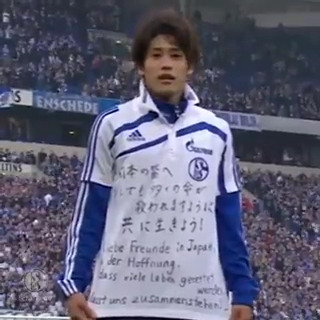 ENSCHEDE
adidas
GAZPROM
日本の皆へ
少しでも多くの命が
救われますように
共に生きよう!
Liebe Freunde in Japan,
in der Hoffnung,
dass viele Leben gerettet werden
Lasst uns zusammenstehen!